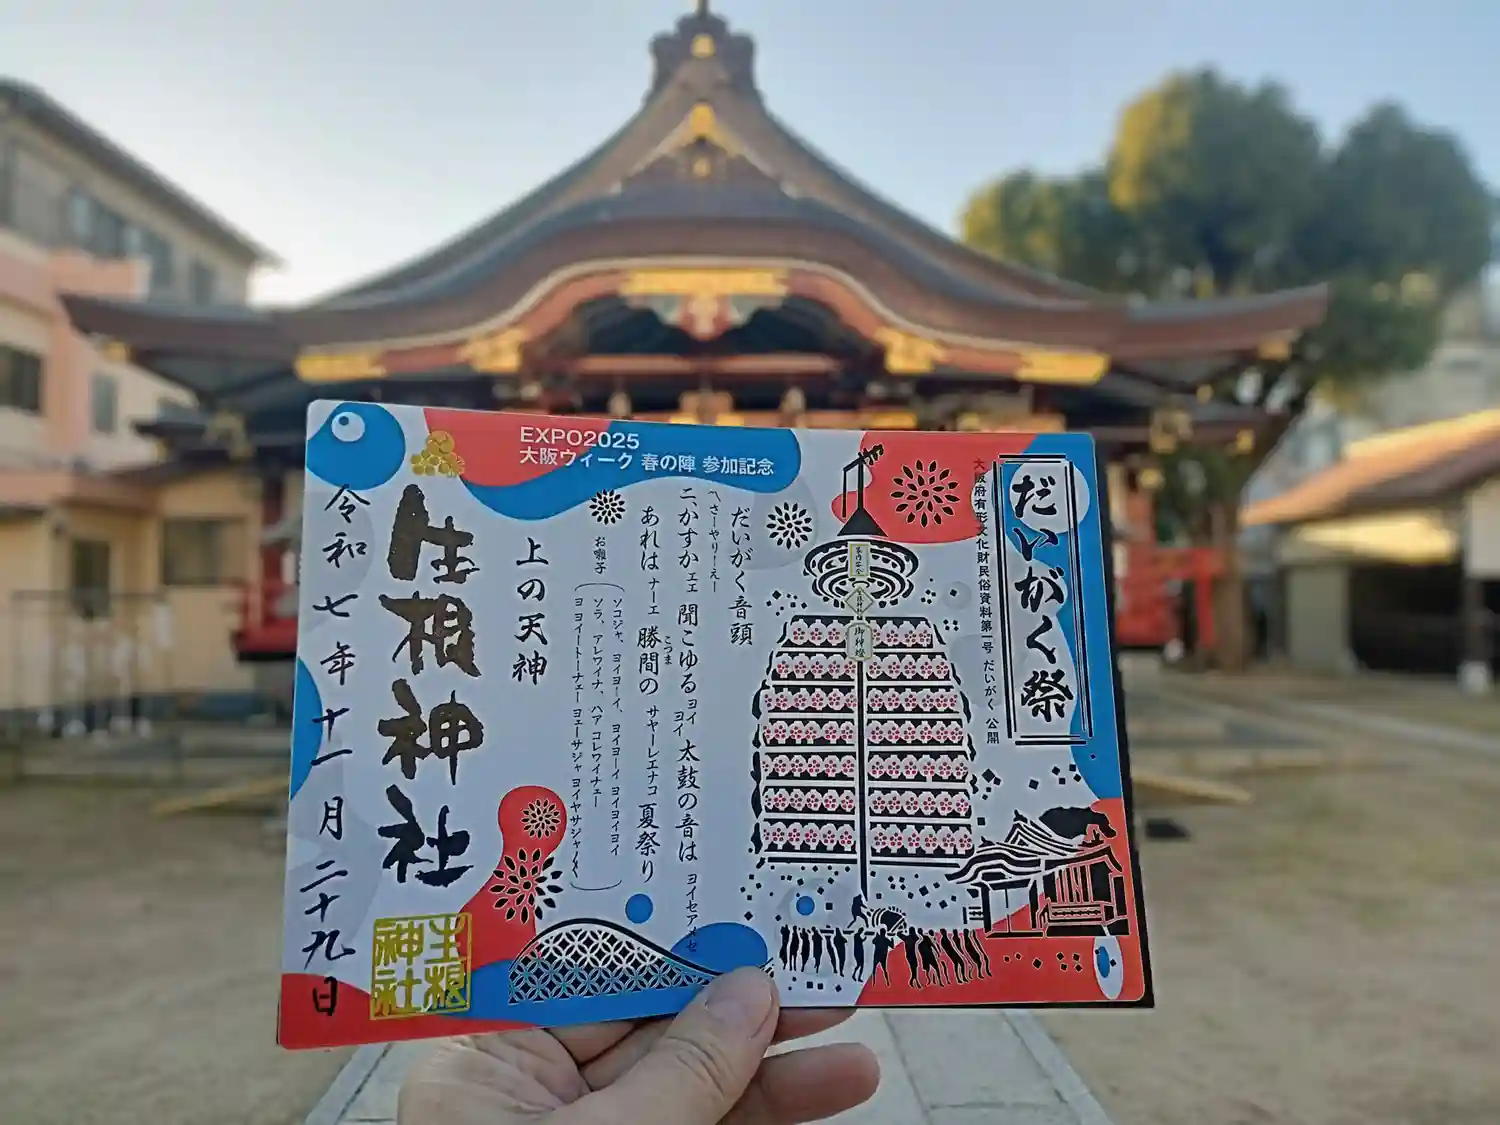 EXPO2025
大阪ウィーク 春の陣 参加記念
だいがく祭
大阪府有形文化財民俗資料第一号 だいがく 公開
御神燈
だいがく音頭
へさーやりーえー
二、かすか エエ 聞こゆる ヨイ ヨイ 太鼓の音は ヨイセアメセ
あれは ナーエ 勝間の こつま サヤーレエナコ 夏祭り
お囃子
ソコジャ、ヨイヨーイ、ヨイヨーイ ヨイヨイヨイ
ソラ、アレワイナ、ハア コレワイナエー
ヨヨイトーナェー ヨェーサジャ ヨイヤサジャ
上の天神
生根神社
生根神社
令和七年十一月二十九日